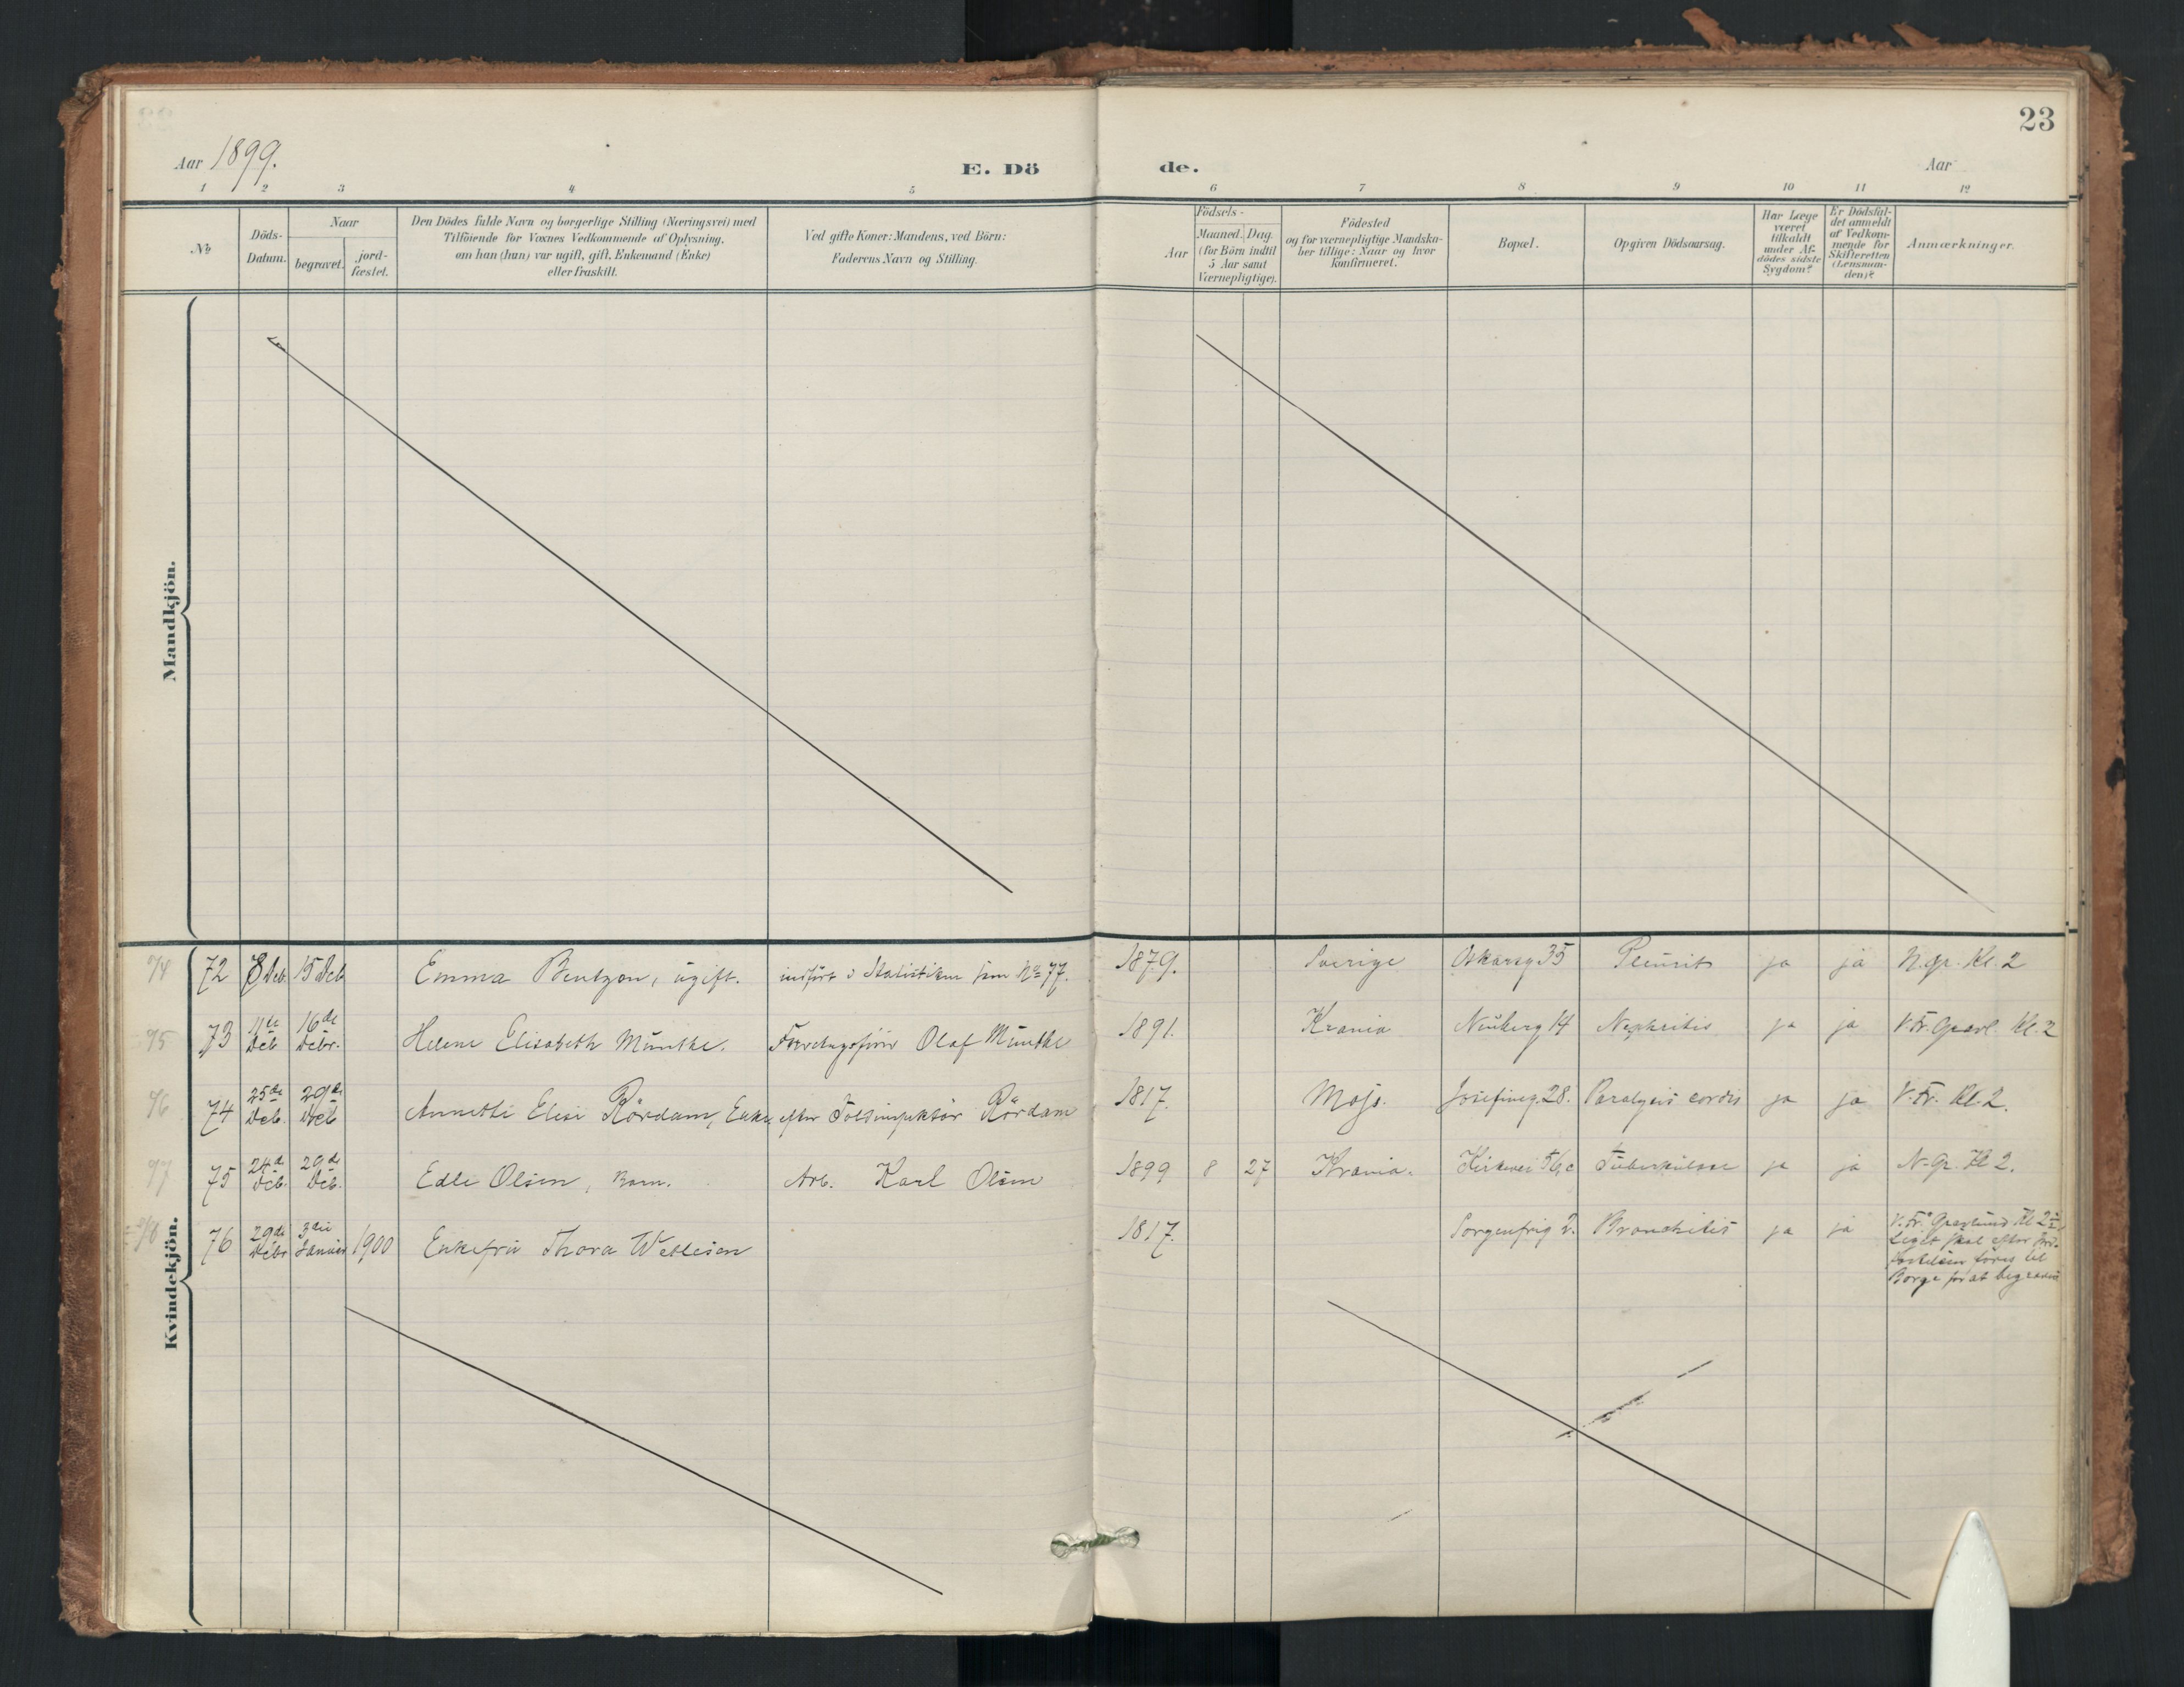 23
Aar 1899.
E. Dö de.
Aar
1 2 3 4 5 6 7 8 9 10 11 12
No
Döds-
Datum.
Naar
begravet.
jord-
fæstet.
Den Dödes fulde Navn og borgerlige Stilling (Næringsvei) med
Tilföiende for Voxnes Vedkommende af Oplysning,
om han (hun) var ugift, gift, Enkemand (Enke)
eller fraskilt.
Ved gifte Koner: Mandens, ved Börn:
Faderens Navn og Stilling.
Aar
Födsels-
Maaned. Dag.
(for Börn indtil
5 Aar samt
Værnepligtige).
Födested
og for værnepligtige Mandska-
ber tillige: Naar og hvor
konfirmeret.
Bopæl.
Opgiven Dödsaarsag.
Har Læge
været
tilkaldt
under Af-
dödes sidste
Sygdom?
Er Dödsfal-
det anmeldt
af Vedkom-
mende for
Skifteretten
(Lensman-
den)?
Anmærkninger.
Mandkjön.
Kvindekjön.
74 72 8 Deb. 15 Deb Emma Bentzon, ugift. indført i Statistiken som No 77. 1879. Sverige Oskarsg 35 Pleurit ja ja N. gr. Kl. 2
75 73 11te Deb. 16de Debr. Helene Elisabeth Münthe. Olaf Münthe 1891. Krania Neuberg 14 Nephritis ja ja V. Fr. Gravl. Kl. 2
76 74 25de Deb. 29de Deb Annette Elise Rördam, Enke efter Toldinspektör Rördam 1817. Moss. Josefineg. 28. Paralysis cordis ja ja V. Fr. Kl. 2.
77 75 24de Deb. 29de Deb. Edle Olsen, Barn. Arb. Karl Olsen 1899 8 27 Krania. Kirkevei 56c Tuberkulose ja ja N. Gr. Kl 2.
76 29de Debr 3die Januar 1900 Enkefru Thora Wettesen 1817. Sorgenfrig 2. Bronchitis ja ja V. Fr. Gravlund Kl 2
Liget skal efter Jord-
fæstelsen føres til
Borge for at begraves